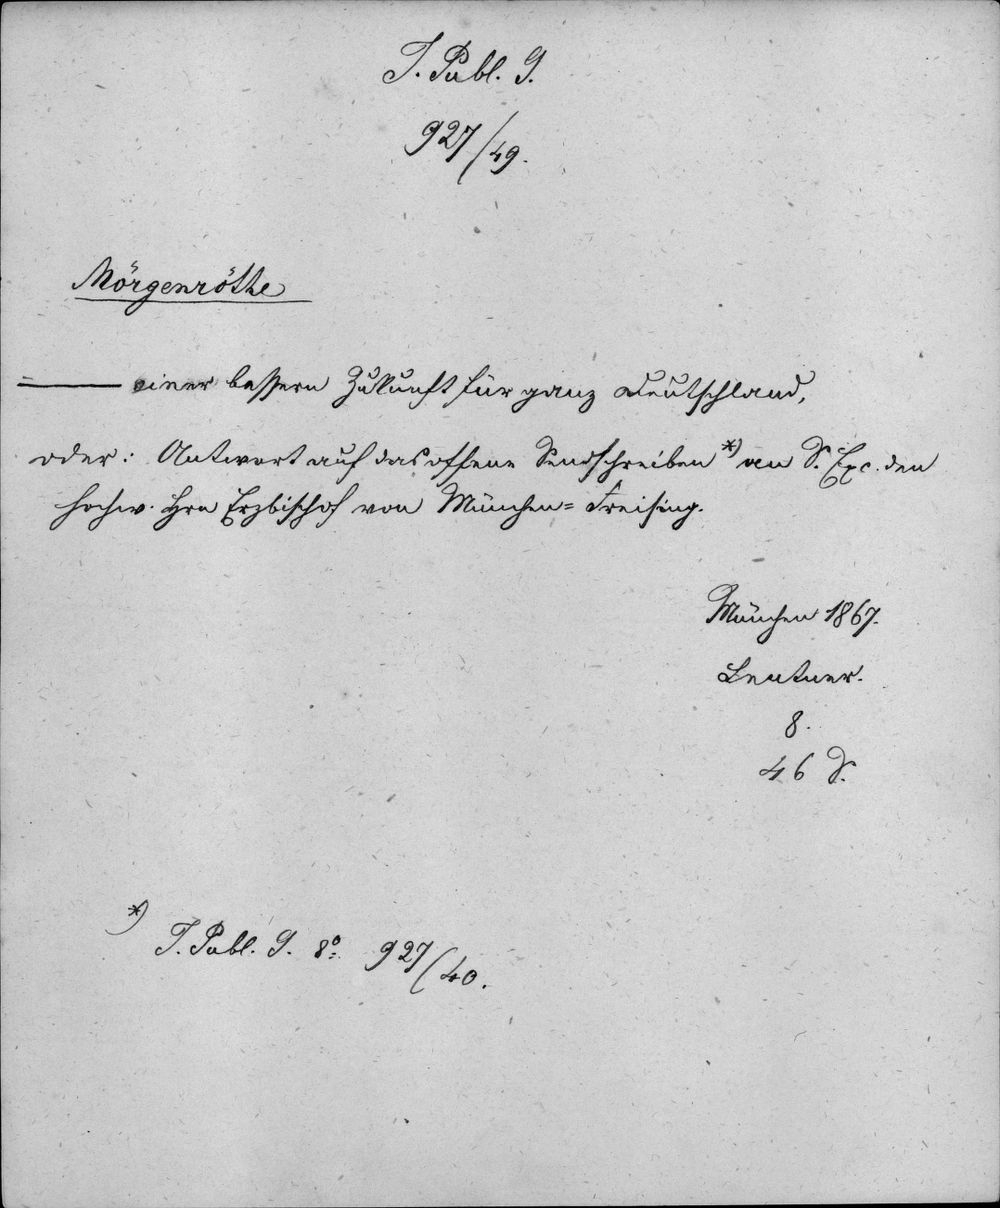 J. Publ. G.
927/49.
Mörgenröthe
einer bessern Zukunft für ganz Deutschland,
oder: Antwort auf das offene Sendschreiben *) an S. Exc. den
hochw. Hrn Erzbischof von München-Freising.
München 1867.
Lentner.
8.
46 S.
*) J. Publ. G. 8o. 927/40.